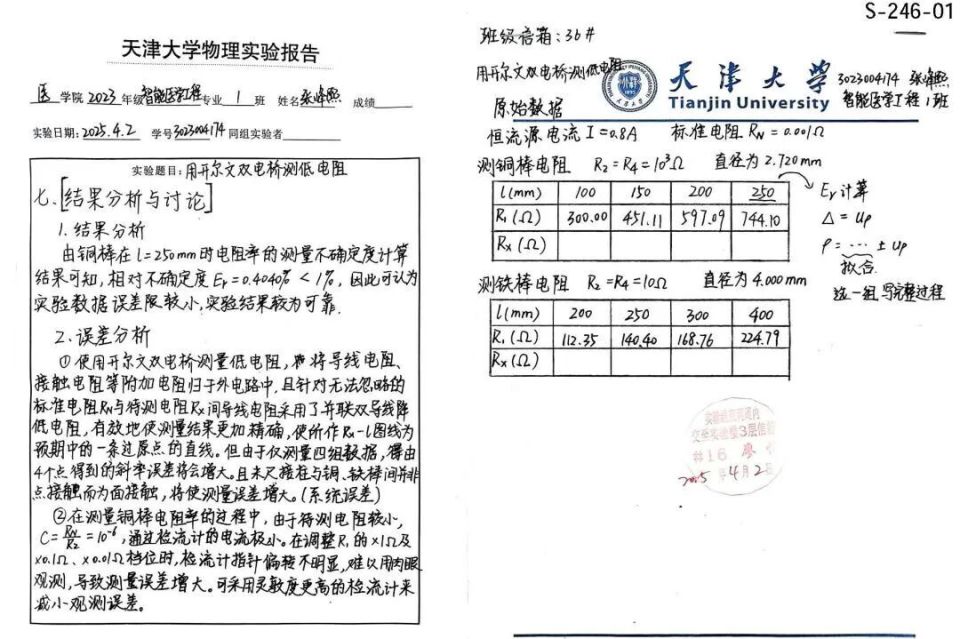 天津大学物理实验报告
医 学院 2023 年级 智能医学工程 专业 1 班 姓名 张峰熙 成绩
实验日期: 2025.4.2 学号 3023004174 同组实验者
实验题目: 用开尔文双电桥测低电阻
七、[结果分析与讨论]
1. 结果分析
由铜棒在 l=250mm 时电阻率的测量不确定度计算
结果可知, 相对不确定度 Er=0.4040% < 1%, 因此可认为
实验数据误差限较小, 实验结果较为可靠.
2. 误差分析
① 使用开尔文双电桥测量低电阻, 将导线电阻、
接触电阻等附加电阻归于外电路中, 且针对无法忽略的
标准电阻RN与待测电阻Rx间导线电阻采用了并联双导线降
低电阻, 有效地使测量结果更加精确, 使所作Rx-l图线为
预期中的一条过原点的直线. 但由于仅测量四组数据, 得由
4个点得到的斜率误差将会增大. 且夹接在与铜、铁棒间并非
点接触而为面接触, 将使测量误差增大. (系统误差)
② 在测量铜棒电阻率的过程中, 由于待测电阻较小,
C=RN/R2=10⁻⁶, 通过检流计的电流极小. 在调整R1的×1Ω及
×0.1Ω、×0.01Ω档位时, 检流计指针偏转不明显, 难以用肉眼
观测, 导致测量误差增大. 可采用灵敏度更高的检流计来
减小观测误差.
S-246-01
班级信箱: 36#
用开尔文双电桥测低电阻
天津大学
Tianjin University
3023004174 张峰熙
智能医学工程 1班
原始数据
恒流源电流 I=0.8A 标准电阻 RN=0.001Ω
测铜棒电阻 R2=R4=10³Ω 直径为 2.720mm
l(mm) 100 150 200 250
R1(Ω) 300.00 451.11 597.09 744.10
Rx(Ω)
Er 计算
Δ = Up
ρ = … ± Up
拟合.
选一组, 写完整过程
测铁棒电阻 R2=R4=10Ω 直径为 4.000mm
l(mm) 200 250 300 400
R1(Ω) 112.35 140.40 168.76 224.79
Rx(Ω)
#16
2025年4月2